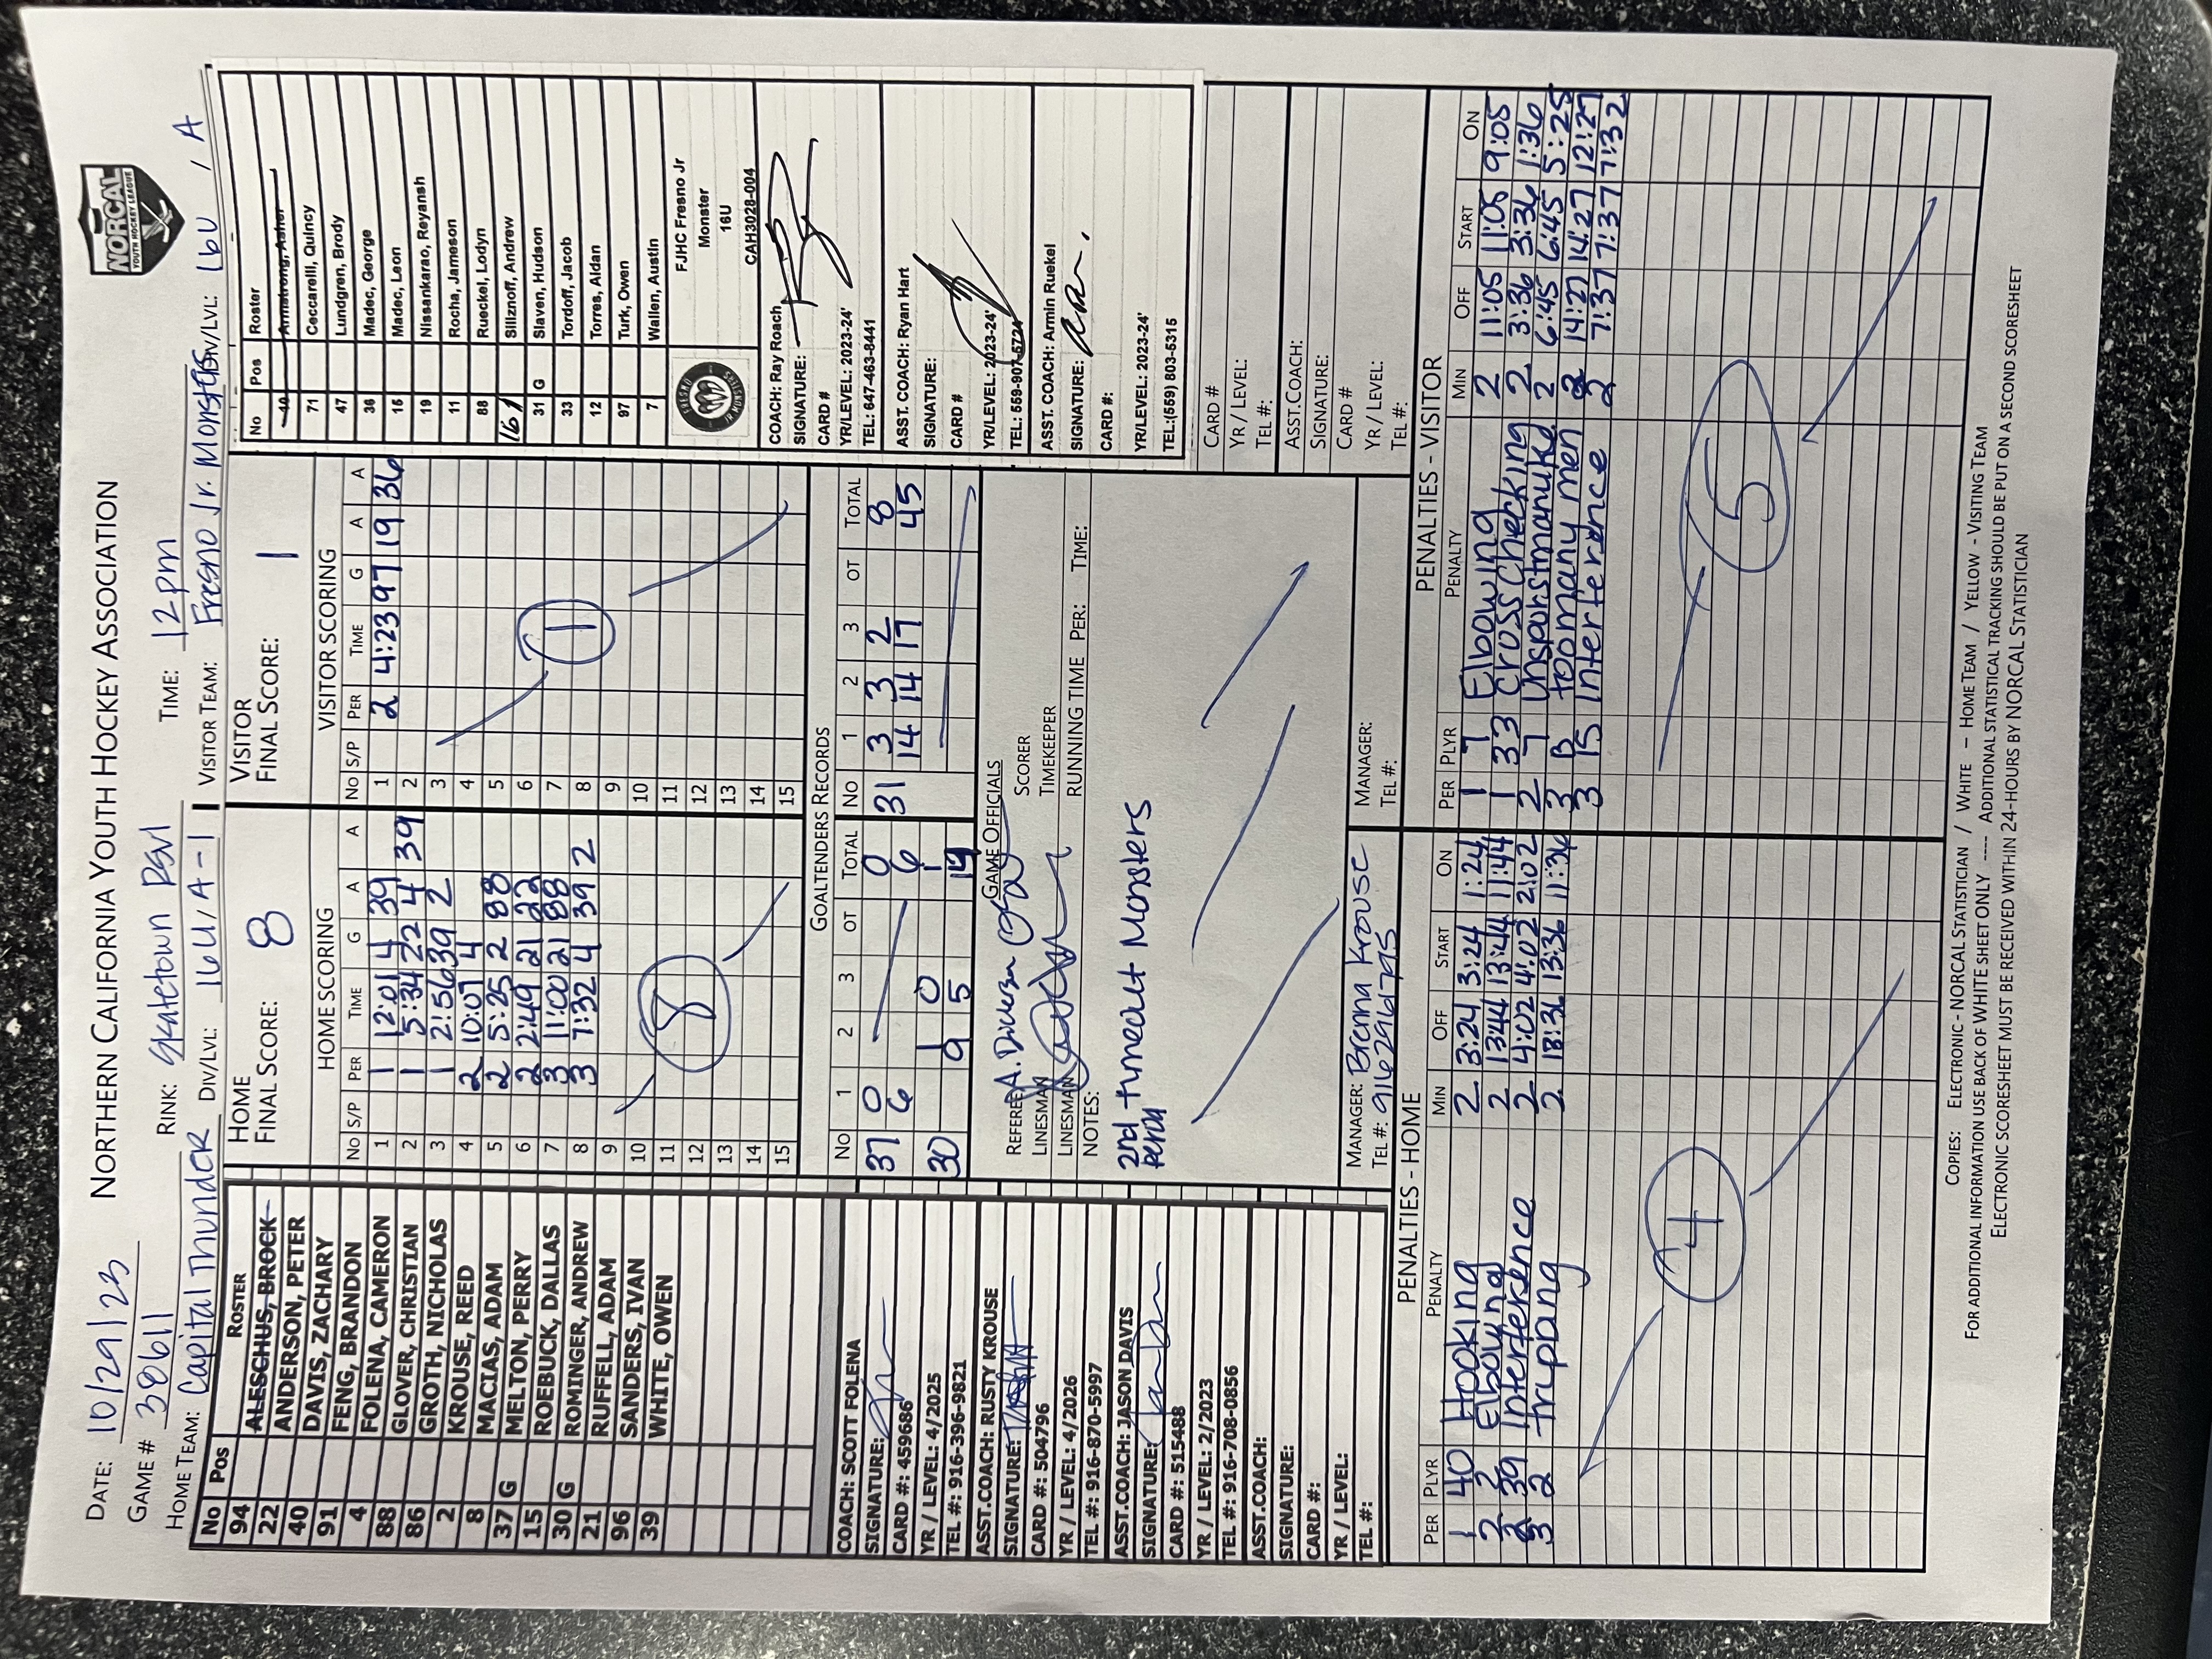 NORTHERN CALIFORNIA YOUTH HOCKEY ASSOCIATION
NORCAL
YOUTH HOCKEY LEAGUE
DATE: 10/29/23
GAME # 38611 RINK: Skatetown RSVL TIME: 12pm
HOME TEAM: Capital Thunder DIV/LVL: 16U/A-1 VISITOR TEAM: Fresno Jr. Monsters DIV/LVL: 16U / A
No Pos ROSTER
94 ALESCHUS, BROCK
22 ANDERSON, PETER
40 DAVIS, ZACHARY
91 FENG, BRANDON
4 FOLENA, CAMERON
88 GLOVER, CHRISTIAN
86 GROTH, NICHOLAS
2 KROUSE, REED
8 MACIAS, ADAM
37 G MELTON, PERRY
15 ROEBUCK, DALLAS
30 G ROMINGER, ANDREW
21 RUFFELL, ADAM
96 SANDERS, IVAN
39 WHITE, OWEN
HOME
FINAL SCORE: 8
HOME SCORING
NO S/P PER TIME G A A
1 1 12:01 4 39
2 1 5:34 22 4 39
3 1 2:56 39 2
4 2 10:07 4
5 2 5:25 2 88
6 2 2:49 21 22
7 3 11:00 21 88
8 3 7:32 4 39 2
9
10
11
12
13
14
15
8
VISITOR
FINAL SCORE: 1
VISITOR SCORING
NO S/P PER TIME G A A
1 2 4:23 97 19 36
2
3
4
5
6
7
8
9
10
11
12
13
14
15
1
No Pos Roster
10 Armstrong, Asher
71 Ceccarelli, Quincy
47 Lundgren, Brody
36 Madec, George
15 Madec, Leon
19 Nissankarao, Reyansh
11 Rocha, Jameson
88 Rueckel, Lodyn
16 Siliznoff, Andrew
31 G Slaven, Hudson
33 Tordoff, Jacob
12 Torres, Aidan
97 Turk, Owen
7 Wallen, Austin
FJHC Fresno Jr
Monster
16U
CAH3028-004
COACH: Ray Roach
SIGNATURE:
CARD #
YR/LEVEL: 2023-24'
TEL: 647-463-8441
ASST. COACH: Ryan Hart
SIGNATURE:
CARD #
YR/LEVEL: 2023-24'
TEL: 559-907-5724
ASST. COACH: Armin Ruekel
SIGNATURE:
CARD #:
YR/LEVEL: 2023-24'
TEL:(559) 803-5315
CARD #
YR / LEVEL:
TEL #:
ASST.COACH:
SIGNATURE:
CARD #
YR / LEVEL:
TEL #:
COACH: SCOTT FOLENA
SIGNATURE:
CARD #: 459686
YR / LEVEL: 4/2025
TEL #: 916-396-9821
ASST.COACH: RUSTY KROUSE
SIGNATURE:
CARD #: 504796
YR / LEVEL: 4/2026
TEL #: 916-870-5997
ASST.COACH: JASON DAVIS
SIGNATURE:
CARD #: 515488
YR / LEVEL: 2/2023
TEL #: 916-708-0856
ASST.COACH:
SIGNATURE:
CARD #:
YR / LEVEL:
TEL #:
GOALTENDERS RECORDS
NO 1 2 3 OT TOTAL NO 1 2 3 OT TOTAL
37 0 0 31 3 3 2 8
6 6 14 14 17 45
30 1 0 1
9 5 14
GAME OFFICIALS
REFEREE SCORER
LINESMAN TIMEKEEPER
LINESMAN RUNNING TIME PER: TIME:
NOTES:
2nd timeout Monsters
MANAGER: Brenna Krouse MANAGER:
TEL #: 9162961795 TEL #:
PENALTIES - HOME
PER PLYR PENALTY MIN OFF START ON
1 40 Hooking 2 3:24 3:24 1:24
2 2 Elbowing 2 13:44 13:44 11:44
2 39 Interference 2 4:02 4:02 2:02
3 2 tripping 2 13:36 13:36 11:36
4
PENALTIES - VISITOR
PER PLYR PENALTY MIN OFF START ON
1 7 Elbowing 2 11:05 11:05 9:05
1 33 Cross Checking 2 3:36 3:36 1:36
2 7 Unsportsmanlike 2 6:45 6:45 5:25
3 B too many men 2 14:27 14:27 12:27
3 15 Interference 2 7:37 7:37 7:32
5
COPIES: ELECTRONIC - NORCAL STATISTICIAN / WHITE – HOME TEAM / YELLOW - VISITING TEAM
FOR ADDITIONAL INFORMATION USE BACK OF WHITE SHEET ONLY ---- ADDITIONAL STATISTICAL TRACKING SHOULD BE PUT ON A SECOND SCORESHEET
ELECTRONIC SCORESHEET MUST BE RECEIVED WITHIN 24-HOURS BY NORCAL STATISTICIAN